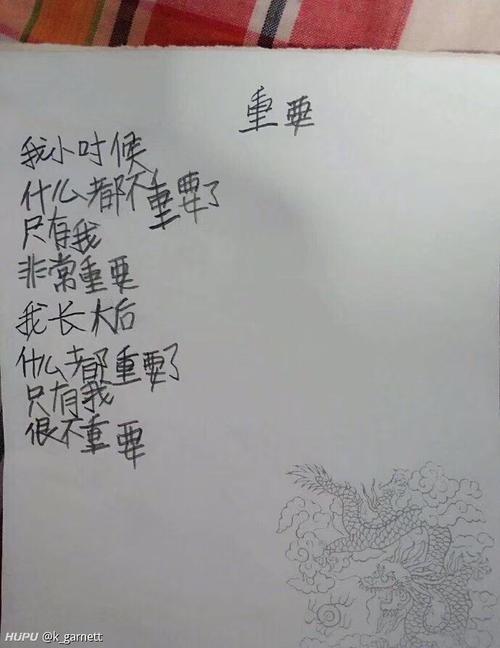 重要
我小时候
什么都不重要了
只有我
非常重要
我长大后
什么都重要了
只有我
很不重要
HUPU @k_garnett